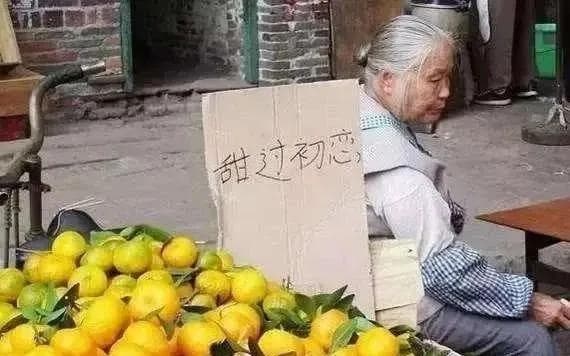 甜过初恋